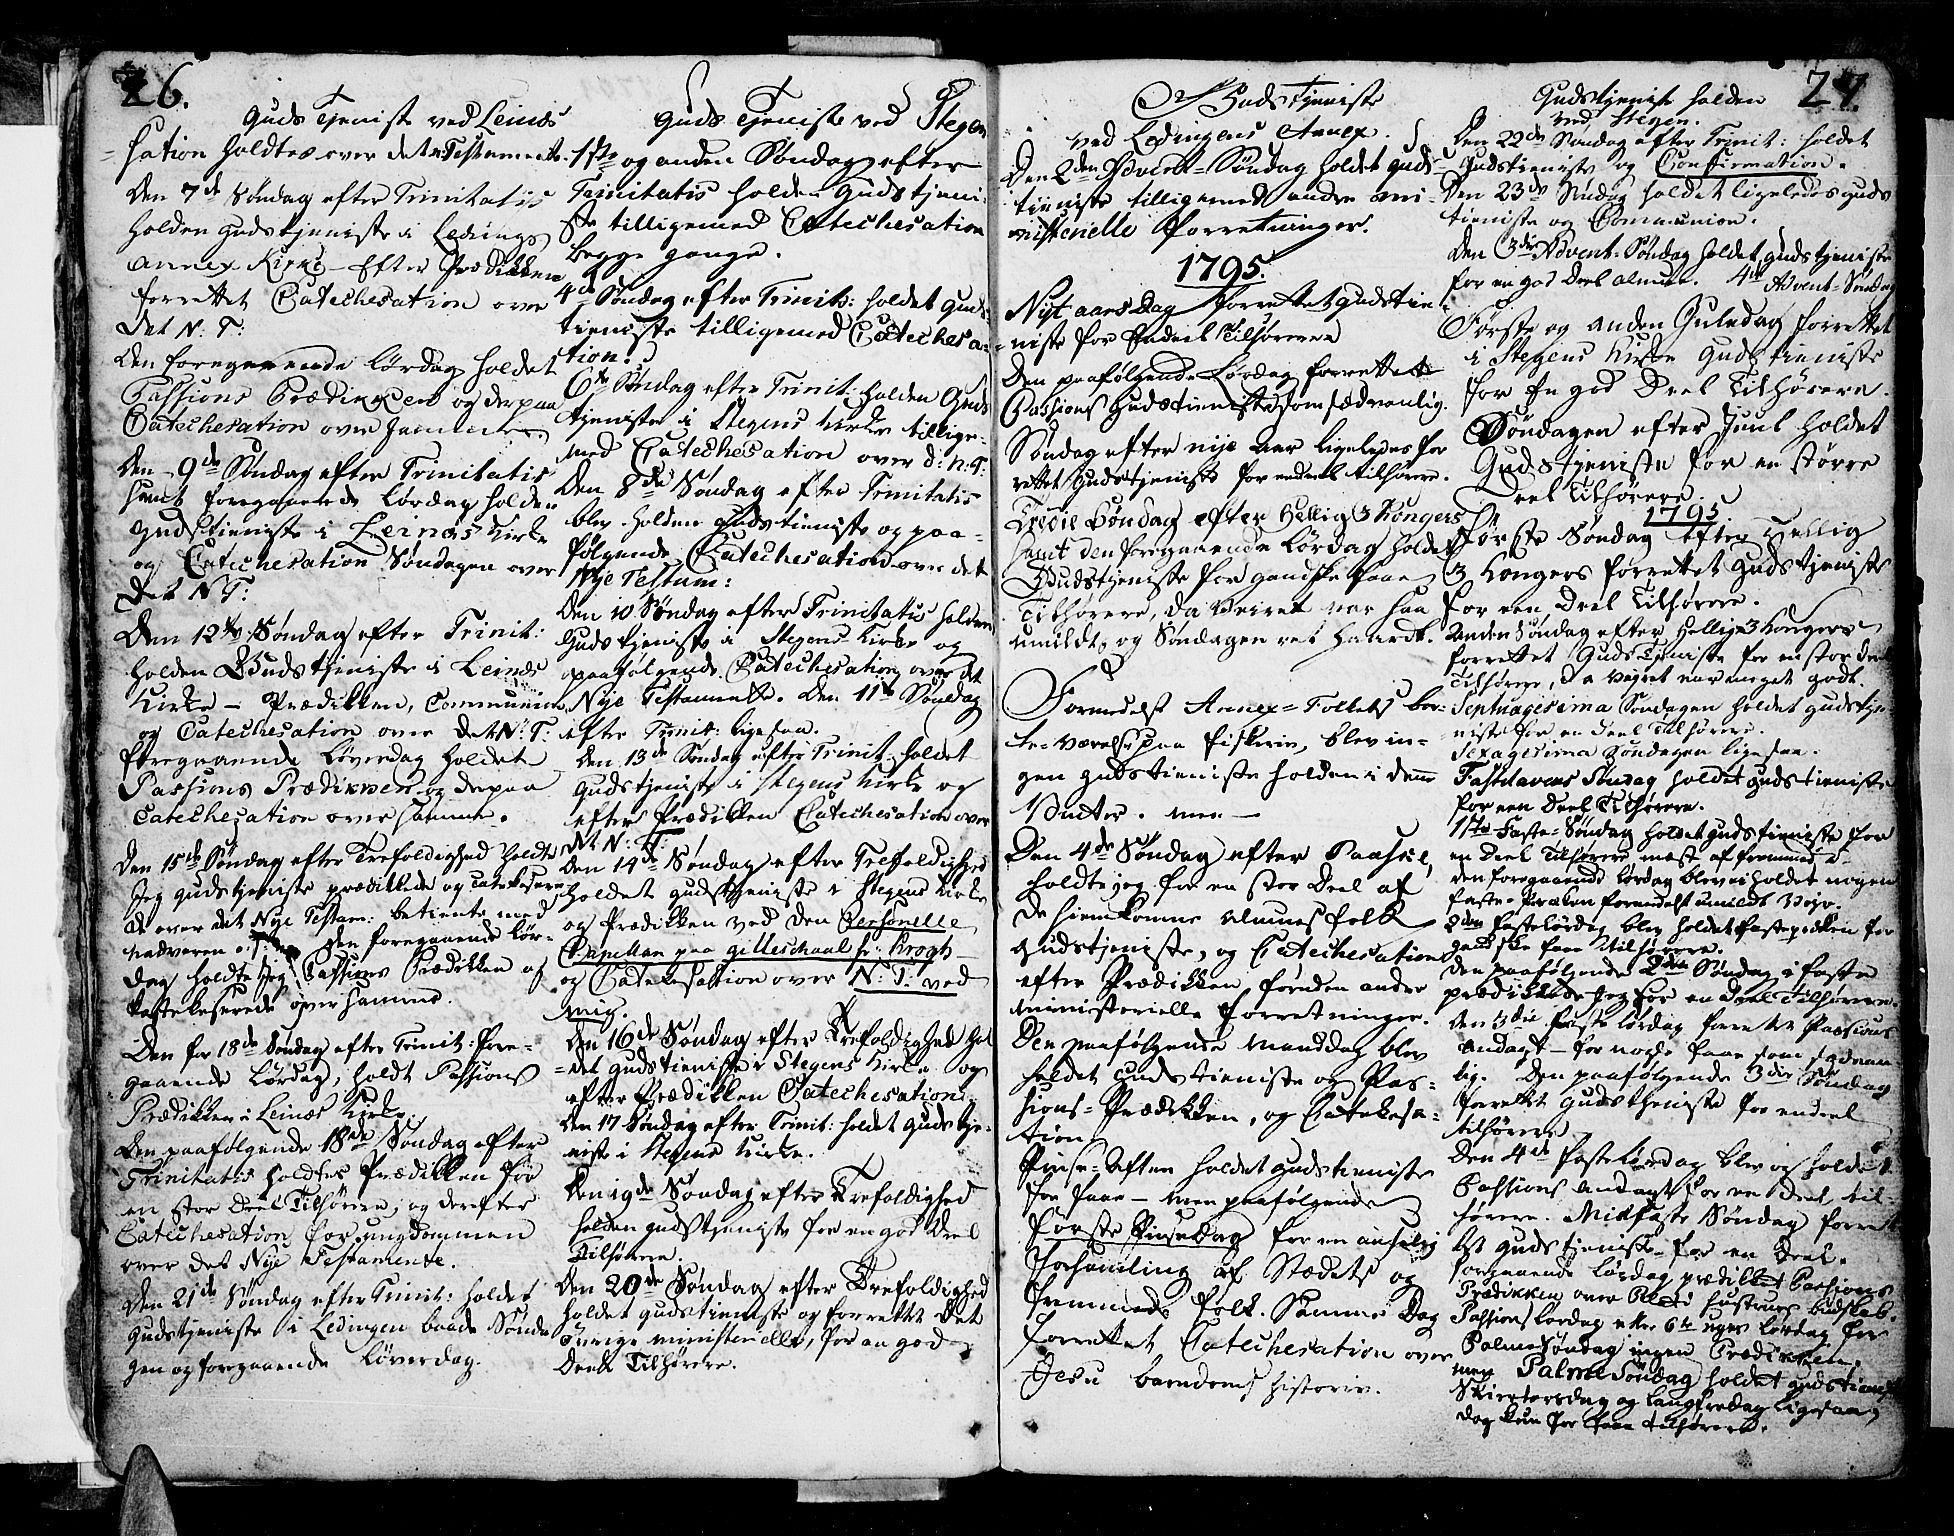 26.
Guds Tjeniste ved Leinæs
sation holdtes over det n: Testamente.
Den 7de Søndag efter Trinitatis
holden Gudstjeniste i Ledings
annex Kirke – Efter Prædikken
forrettet Catechesation over
Det N: T:
Den foregaaende Lørdag holdet
Passions Prædikken og derpaa
Catechesation over samme.
Den 9de Søndag efter Trinitatis
samt foregaaende Lørdag holden
Gudstieniste i Leinæs Kirke
og Catechesation Søndagen over
Det N T:
Den 12te Søndag efter Trinit:
holden Gudstieniste i Leinæs
Kirke – Prædikken, Communion
og Catechesation over det N: T:
Foregaaende Løverdag holdet
Passions Prædikken og derpaa
Catechesation over samme.
Den 15de Søndag efter Trefoldighed holdt
Jeg Gudstjeniste prædikede og Catekeserede
over det Nye Testam: betiente med
Nadveren den foregaaende Lør-
dag holdt jeg Passions Prædikken og
katekeserede over samme.
Den for 18de Søndag efter Trinit: fore-
gaaende Lørdag, holdt Passions
Prædikken i Leinæs Kirke
Den paafølgende 18de Søndag efter
Trinitatis holdtes Prædikken for
en stor Deel Tilhørere, og derefter
Catechesation for ungdommen
over det Nye Testamente.
Den 21de Søndag efter Trinit: holdet
Gudstjeniste i Ledingen baade Sønda-
gen og foregaaende Løverdag.
Guds Tjeniste ved Stegen
1ste og anden Søndag efter
Trinitatis holden Gudstjeni-
ste tilligemed Catechesation
begge gange.
4de Søndag efter Trinit: holdet Guds-
tieniste tilligemed Catechesa-
tion.
6te Søndag efter Trinit: holden Guds
tjeniste i Stegens Kirke tillige-
med Catechesation over d: N: T:
Den 8de Søndag efter Trinitatis
blev holden Gudstieniste og paa-
følgende Catechesation over det
Nye Testam:
Den 10 Søndag efter Trinitatis holden
Gudstjeniste i Stegens Kirke og
paafølgende Catechesation over det
Nye Testamente. Den 11te Søndag
efter Trinit: ligesaa.
Den 13de Søndag efter Trinit: holdet
Gudstjeniste i Stegens Kirke og
efter Prædikken Catechesation over
det N: T:
Den 14de Søndag efter Trefoldighed
holdet Gudstjeniste i Stegens Kirke
og Prædikken ved den Personelle
Capellan paa Gilleschaal hr: Krogh
og Catekesation over N: T: ved
mig.
Den 16de Søndag efter Trefoldighed hol
det Gudstieniste i Stegens Kirke og
efter Prædikken Catechesation.
Den 17 Søndag efter Trinit: holdet Gudstje-
niste i Stegens Kirke.
Den 19de Søndag efter Trefoldighed
holden Gudstjeniste for en god Deel
Tilhørere.
Den 20de Søndag efter Trefoldighed
holdet Gudstieniste og forrettet det
øvrige ministerielle, for en god
Deel Tilhørere.
27.
Gudstjeniste
ved Ledingens Annex.
Den 2den Advent-Søndag holdet Guds-
tieniste tilligemed andre mi-
nisterielle Forretninger.
1795.
Nyt aars Dag forrettet Gudstie-
niste for Endeel Tilhørere
Den paafølgende Lørdag forrettet
Passions Gudstieniste som sædvanlig.
Søndag efter nye aar ligeledes for
rettet Gudstjeniste for endeel tilhørere.
Tredie Søndag efter Hellig 3 Kongers
samt den foregaaende Lørdag holdet
Gudstjeniste for gandske faae
Tilhørere, da Veiret var saa
umildt, og Søndagen ret haardt.
Formedelst Annex-Folkets bor-
te-værelse paa fiskerie, blev in-
gen Gudstieniste holden i denne
Vinter. men –
Den 4de Søndag efter Paaske,
holdt jeg for en stor Deel af
de hiemkomne Almues folk
Gudstjeniste, og Catechesation
efter Prædikken foruden andre
ministerielle forretninger.
Den paafølgende Manddag blev
holdet Gudstieniste og Pas-
sions-Prædikken, og Catekesa-
tion
Pinse-Aften holdet Gudstieniste
for faae – men paafølgende
Første Pinsedag for en anselig
Forsamling af Stædets og
fremmede folk. Samme Dag
forrettet Catechesation over
Jesu barndoms historie.
Gudstjeniste holden
ved Stegen.
Den 22de Søndag efter Trinit: holdet
Gudstieniste og Confirmation.
Den 23de Søndag holdet ligeledes Guds
tieniste og Communion.
Den 3die Advent-Søndag holdet Gudstjeniste
for en god Deel almue. 4de Advent-Søndag
Første og anden Juledag forrettet
i Stegens Kirke Gudstieniste
for En god Deel Tilhørere.
Søndagen efter Juul holdet
Gudstjeniste for en større
Deel Tilhørere.
1795
Første Søndag efter Hellig
3 Kongers forrettet Gudstjeniste
for een Deel Tilhørere.
Anden Søndag efter Hellig 3 Kongers
forrettet Guds Tjeniste for en stor deel
Tilhørere, da veyret var meget godt.
Septuagesima Søndagen holdet Gudstje-
niste for en deel Tilhørere.
Sexagesima Søndagen ligesaa.
Fastelavens Søndag holdet Gudstieniste
for een Deel Tilhørere.
1ste Faste-Søndag holdet Gudstieniste for
en Deel Tilhørere mest af fremmede
den foregaaende Lørdag blev ei holdet nogen
faste-Præken formedelst umildt Vejr.
2den fastelørdag blev holdet fastepræken for
gandske faae Tilhørere.
Den paafølgende 2den Søndag i faste
prædikede jeg for en Deel Tilhørere.
Den 3die faste Lørdag forrettet Passions
Andagt – for nogle faae som sædvan
lig. Den paafølgende 3die Søndag
forrettet Gudstieniste for endeel
tilhørere
Den 4de fasteLørdag blev og holdet
Passions Andagt for en deel, til-
hørere. Midfaste Søndag forret
tet Gudstjeniste for en Deel.
forgaaende Lørdag prædiket Passions
Prædikken over Pilati Hustrues Budskab.
Passions Lørdag eller 6te uges Lørdag for
Palme Søndag ingen Prædikken.
men Palme Søndag holdet Gudstieniste
Skiertorsdag og Langfredag ligesaa,
dog kun for faae tilhørere.